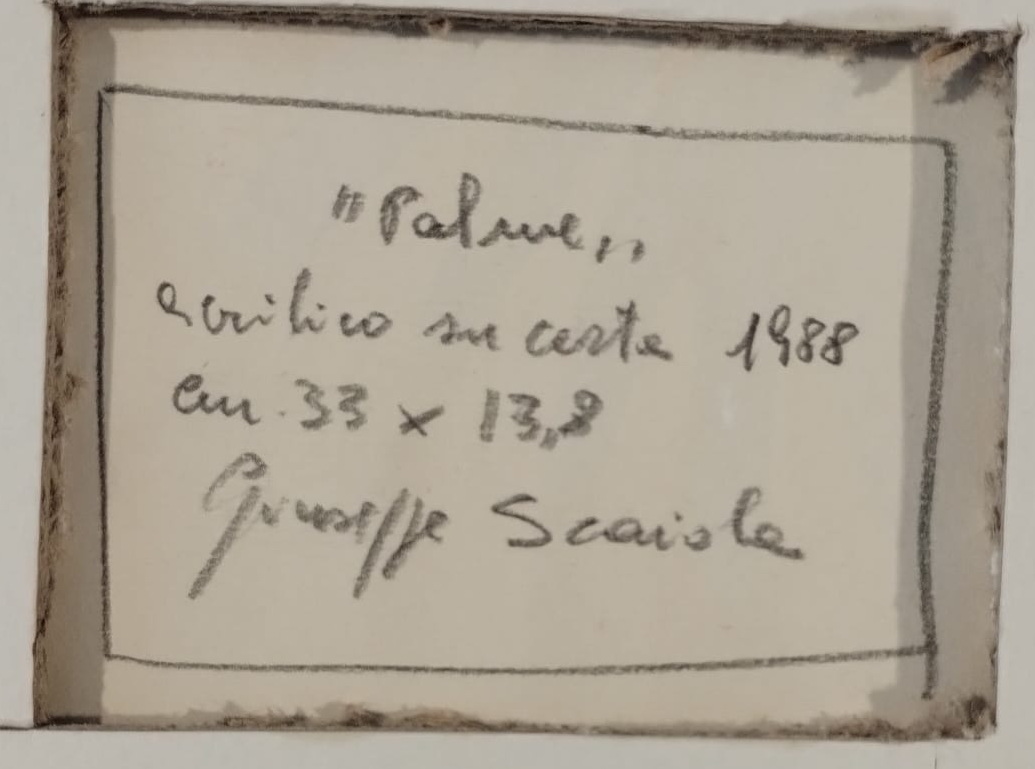 "Palme„
acrilico su carta 1988
cm. 33 x 13,8
Giuseppe Scaiola